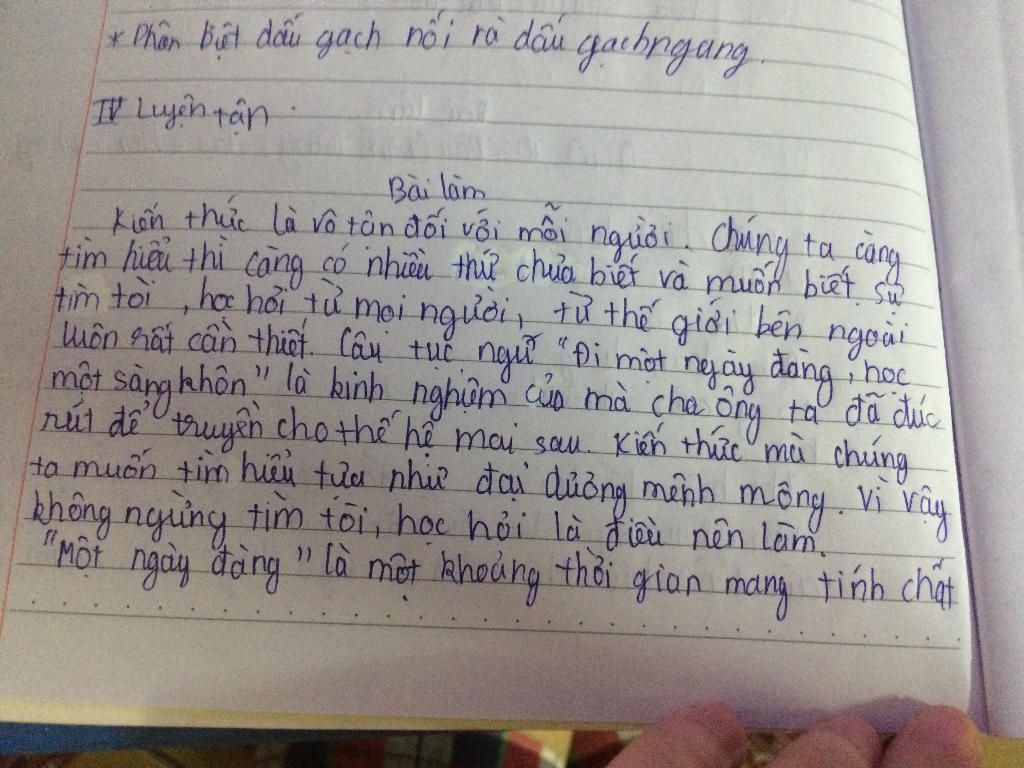 * Phân biệt dấu gạch nối và dấu gạchngang.
IV Luyện tập.
Bài làm
Kiến thức là vô tận đối với mỗi người. Chúng ta càng
tìm hiểu thì càng có nhiều thứ chưa biết và muốn biết. sự
tìm tòi, học hỏi từ mọi người, từ thế giới bên ngoài
luôn rất cần thiết. Câu tục ngữ "Đi một ngày đàng, học
một sàng khôn" là kinh nghiệm của mà cha ông ta đã đúc
rút để truyền cho thế hệ mai sau. Kiến thức mà chúng
ta muốn tìm hiểu tựa như đại dương mênh mông. Vì vậy
không ngừng tìm tòi, học hỏi là điều nên làm.
"Một ngày đàng" là một khoảng thời gian mang tính chất